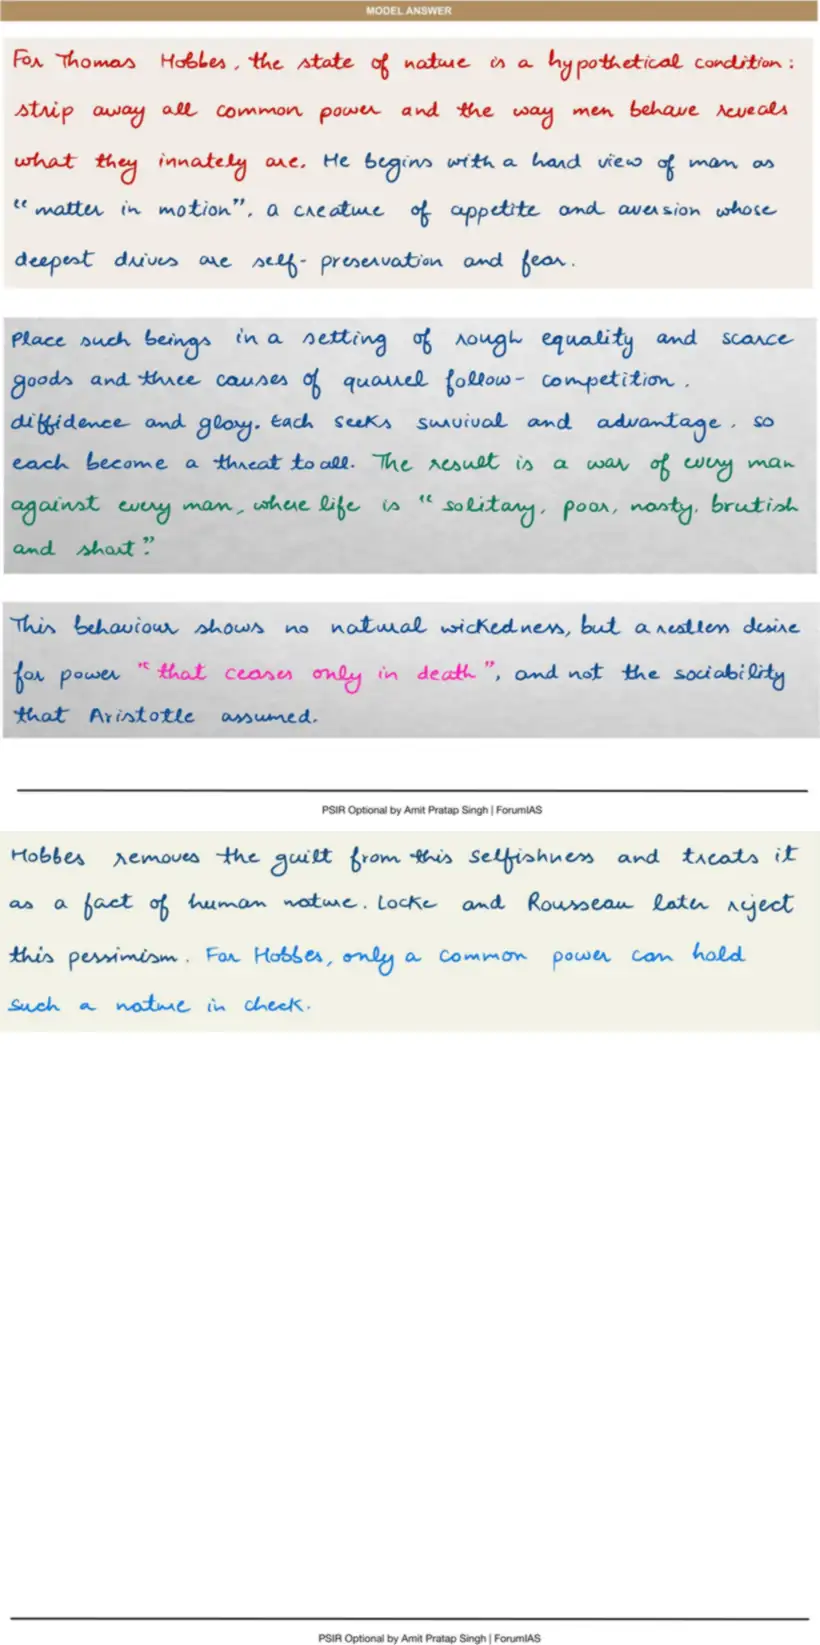 MODEL ANSWER
For Thomas Hobbes, the state of nature is a hypothetical condition:
strip away all common power and the way men behave reveals
what they innately are. He begins with a hard view of man as
"matter in motion", a creature of appetite and aversion whose
deepest drives are self-preservation and fear.
Place such beings in a setting of rough equality and scarce
goods and three causes of quarrel follow- competition,
diffidence and glory. Each seeks survival and advantage, so
each become a threat to all. The result is a war of every man
against every man, where life is "solitary, poor, nasty, brutish
and short".
This behaviour shows no natural wickedness, but a restless desire
for power "that ceases only in death", and not the sociability
that Aristotle assumed.
PSIR Optional by Amit Pratap Singh | ForumIAS
Hobbes removes the guilt from this selfishness and treats it
as a fact of human nature. Locke and Rousseau later reject
this pessimism. For Hobbes, only a common power can hold
such a nature in check.
PSIR Optional by Amit Pratap Singh | ForumIAS